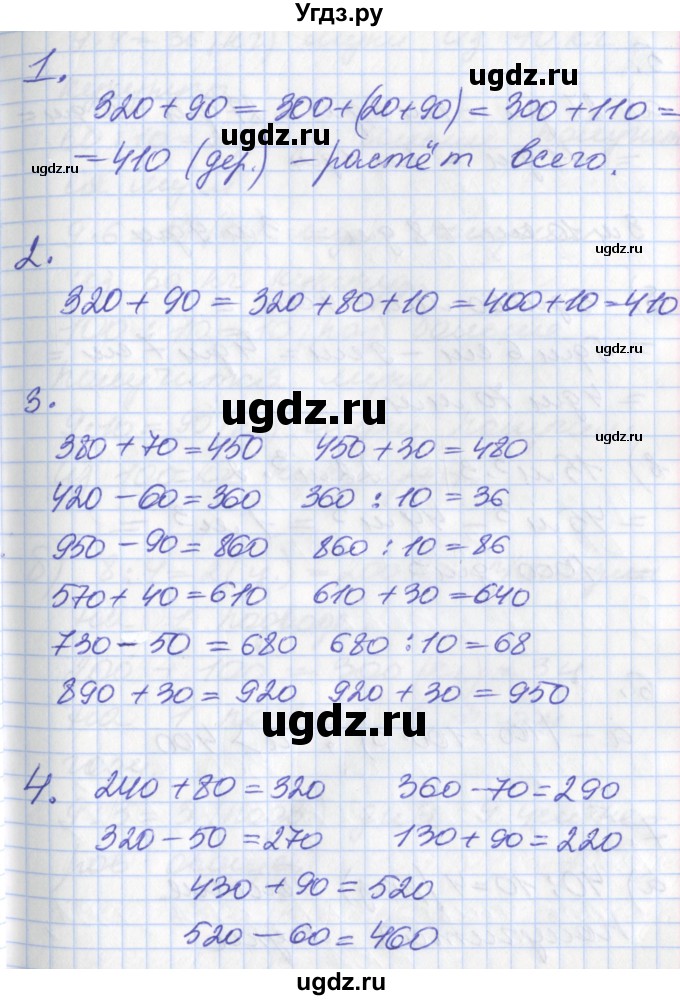 Угдз.ру
1.
320 + 90 = 300 + (20 + 90) = 300 + 110 =
= 410 (дер.) - растёт всего.
2.
320 + 90 = 320 + 80 + 10 = 400 + 10 = 410
3.
380 + 70 = 450 450 + 30 = 480
420 - 60 = 360 360 : 10 = 36
950 - 90 = 860 860 : 10 = 86
570 + 40 = 610 610 + 30 = 640
730 - 50 = 680 680 : 10 = 68
890 + 30 = 920 920 + 30 = 950
4. 240 + 80 = 320 360 - 70 = 290
320 - 50 = 270 130 + 90 = 220
430 + 90 = 520
520 - 60 = 460
ugdz.ru
ugdz.ru
ugdz.ru
ugdz.ru
ugdz.ru
ugdz.ru
ugdz.ru
ugdz.ru
ugdz.ru
ugdz.ru